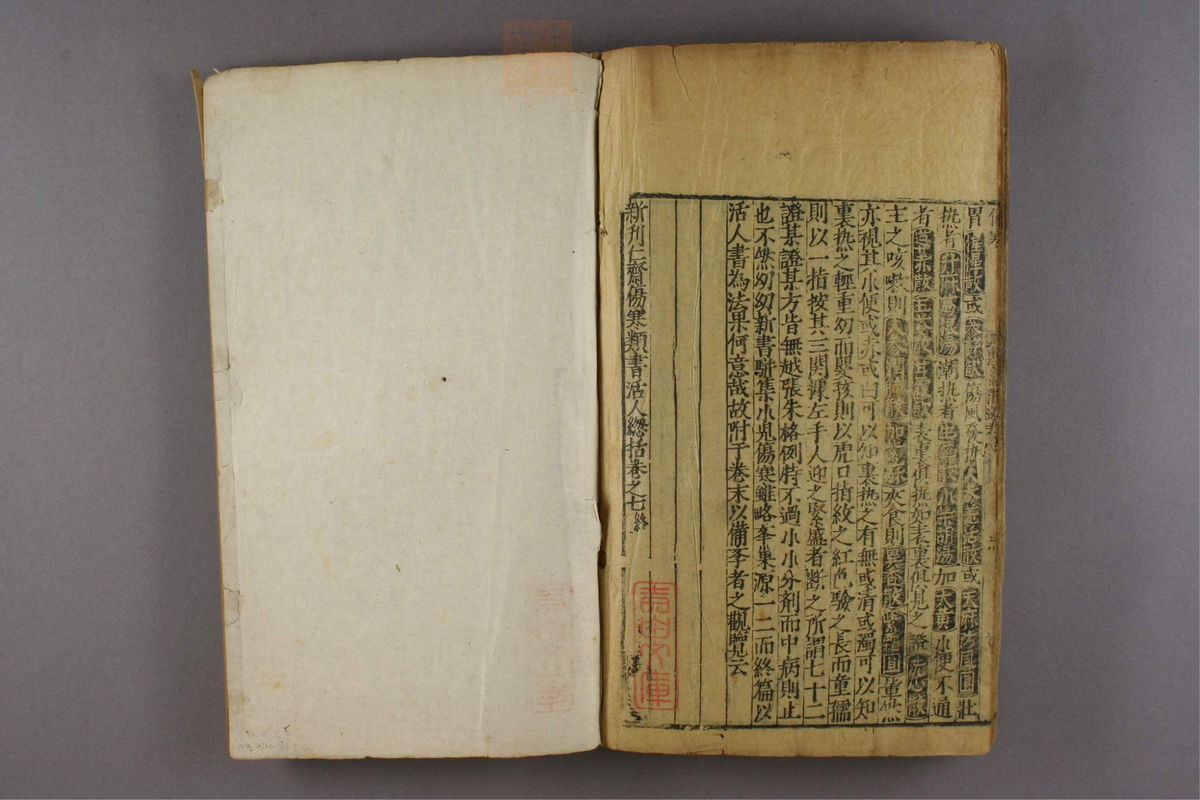 胃惺惺散或參蘇飲傷風發熱人參羌活散或天麻防風圓壯
熱者升麻葛根湯潮熱者生犀散小柴胡湯加大黃小便不通
者導赤散五苓散表裏俱熱如表裏俱見之證洗心散
主之咳嗽則人參夾食則紫霜圓薫然
亦視其小便或赤或白可以知裏熱之有無或清或濁可以知
裏熱之輕重幼而嬰孩則以虎口指紋之紅色驗之長而童孺
則以一指按其三関觀左手人迎之緊盛者斷之所謂七十二
證某證某方皆無越張朱格例特不過小小分劑而中病則止
也不然幼幼新書駢集小兒傷寒雖略李巢源一二而終篇以
活人書為法果何意哉故附于卷末以備李者之觀覽云
新刊仁齋傷寒類書活人總括卷之七終